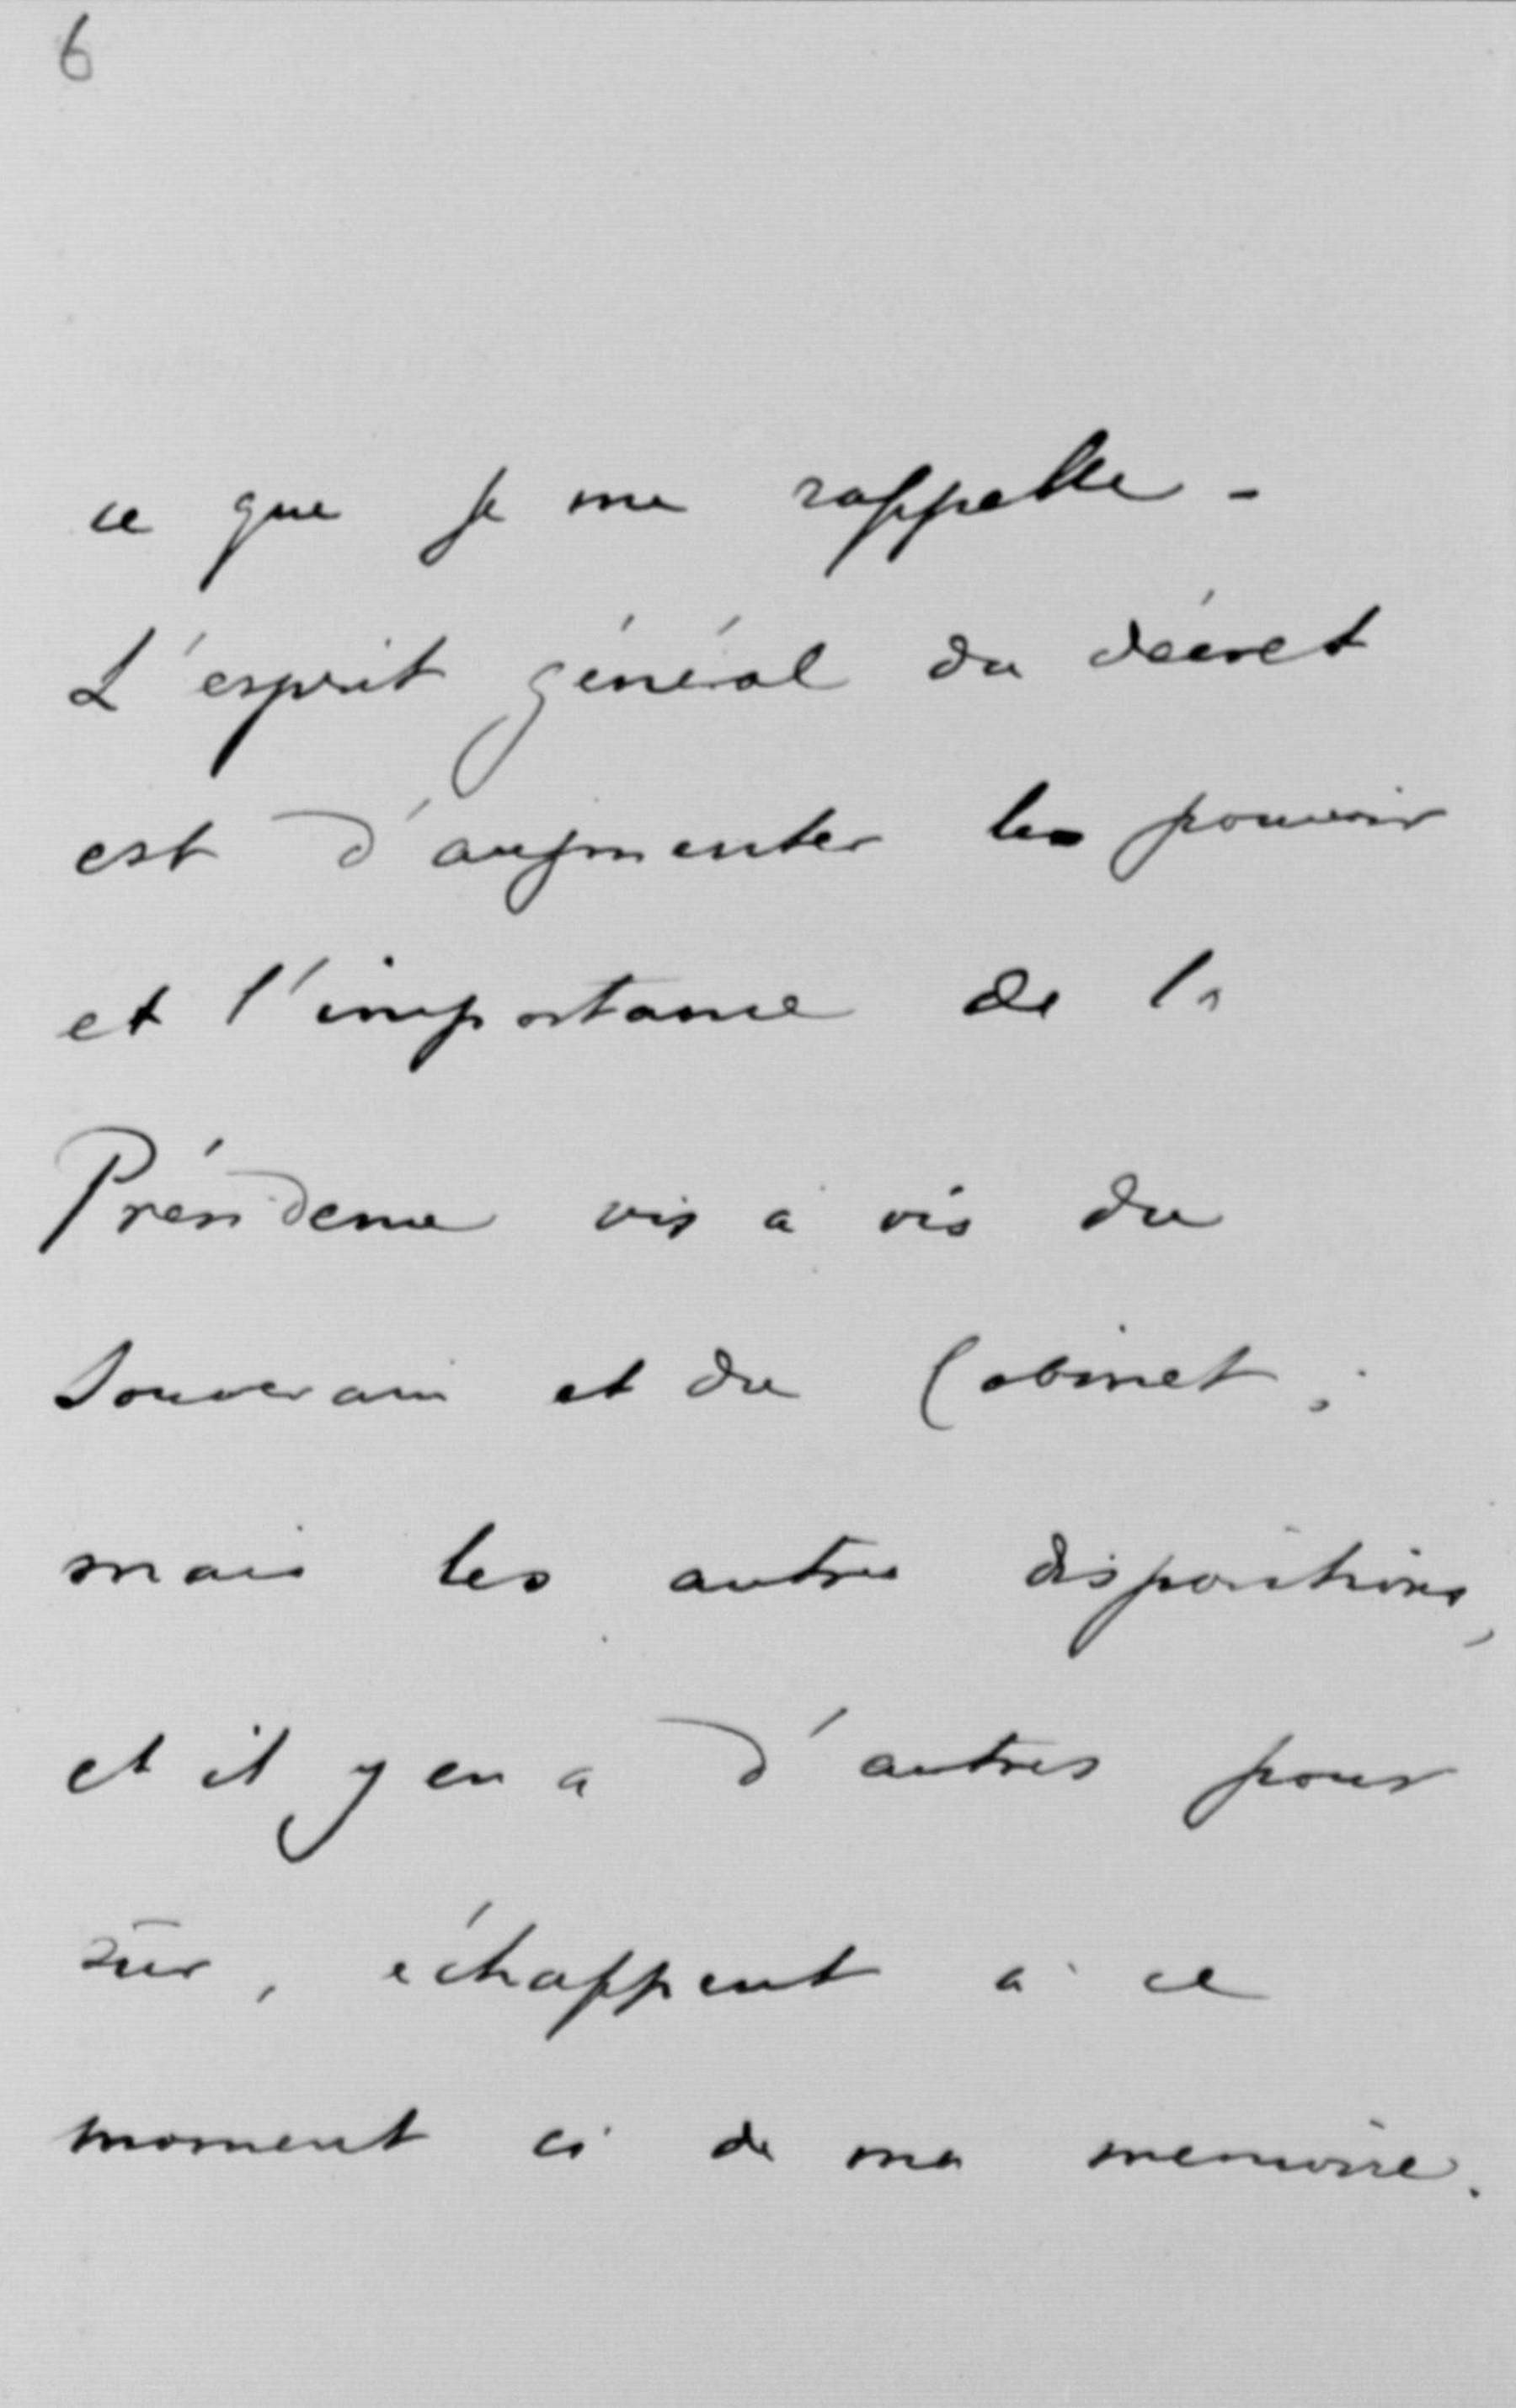 6
ce que je me rappelle -
L'esprit général du décret
est d'augmenter les pouvoir
et l'importance de la
Présidence vis à vis du
Souverain et du Cabinet ;
mais les autres dispositions,
et il y en a d'autres pour
sûr, échappent à ce
moment ci de ma memoire.